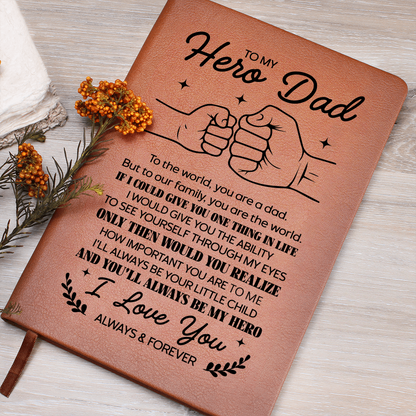 TO MY
Hero Dad
To the world, you are a dad.
But to our family, you are the world.
IF I COULD GIVE YOU ONE THING IN LIFE
I WOULD GIVE YOU THE ABILITY
TO SEE YOURSELF THROUGH MY EYES
ONLY THEN WOULD YOU REALIZE
HOW IMPORTANT YOU ARE TO ME
I'LL ALWAYS BE YOUR LITTLE CHILD
AND YOU'LL ALWAYS BE MY HERO
I Love You
ALWAYS & FOREVER